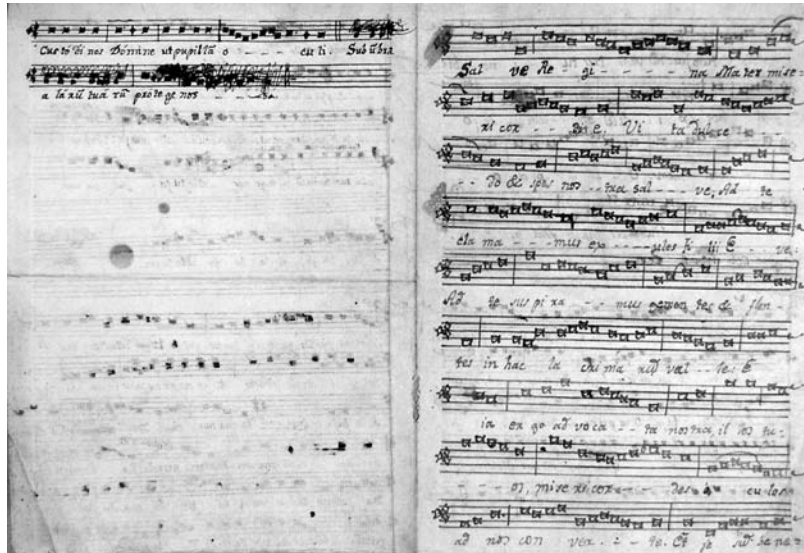 Custodi nos Domine ut pupilla o - - - - culi. Sub ūbra
alarū tuarū protege nos
Sal ve Re - gi - - - - - na Mater mise=
ricor - - diæ, Vi ta dulce - -
- - do & spes nos - - tra sal - - ve, Ad te
cla ma - - - mus ex - - - - ules fi lii E - ve.
Ad te suspira - - - mus gemen tes & flen -
tes in hac la chrima rū val - - le. E
ia ergo ad voca - - ta nostra, il los tu=
- - - os, mise ricor - - - des o - cu los
ad nos con ver - - - te. Et je sū be ne=